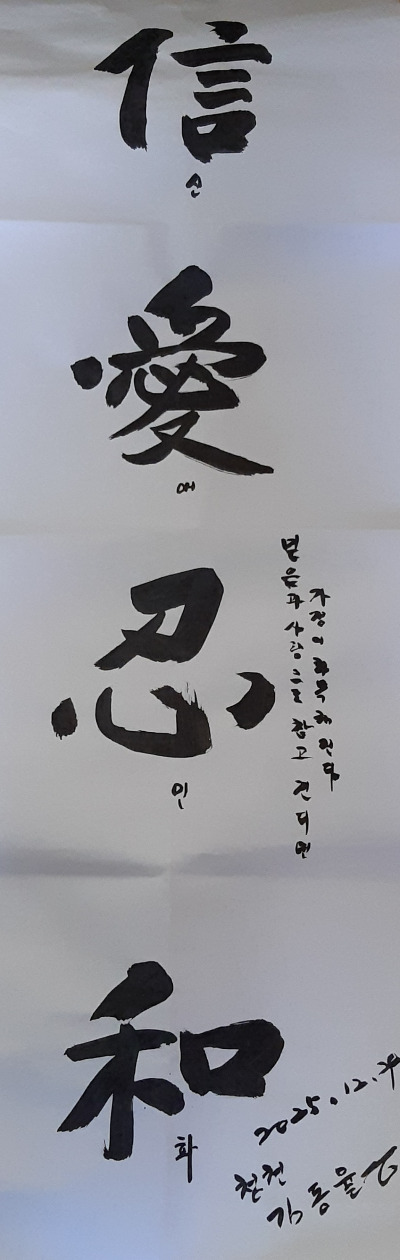 信
신
愛
애
忍
인
믿음과 사랑으로 참고 견디면
가정이 화목해진다
和
화
2025.12.
김동율